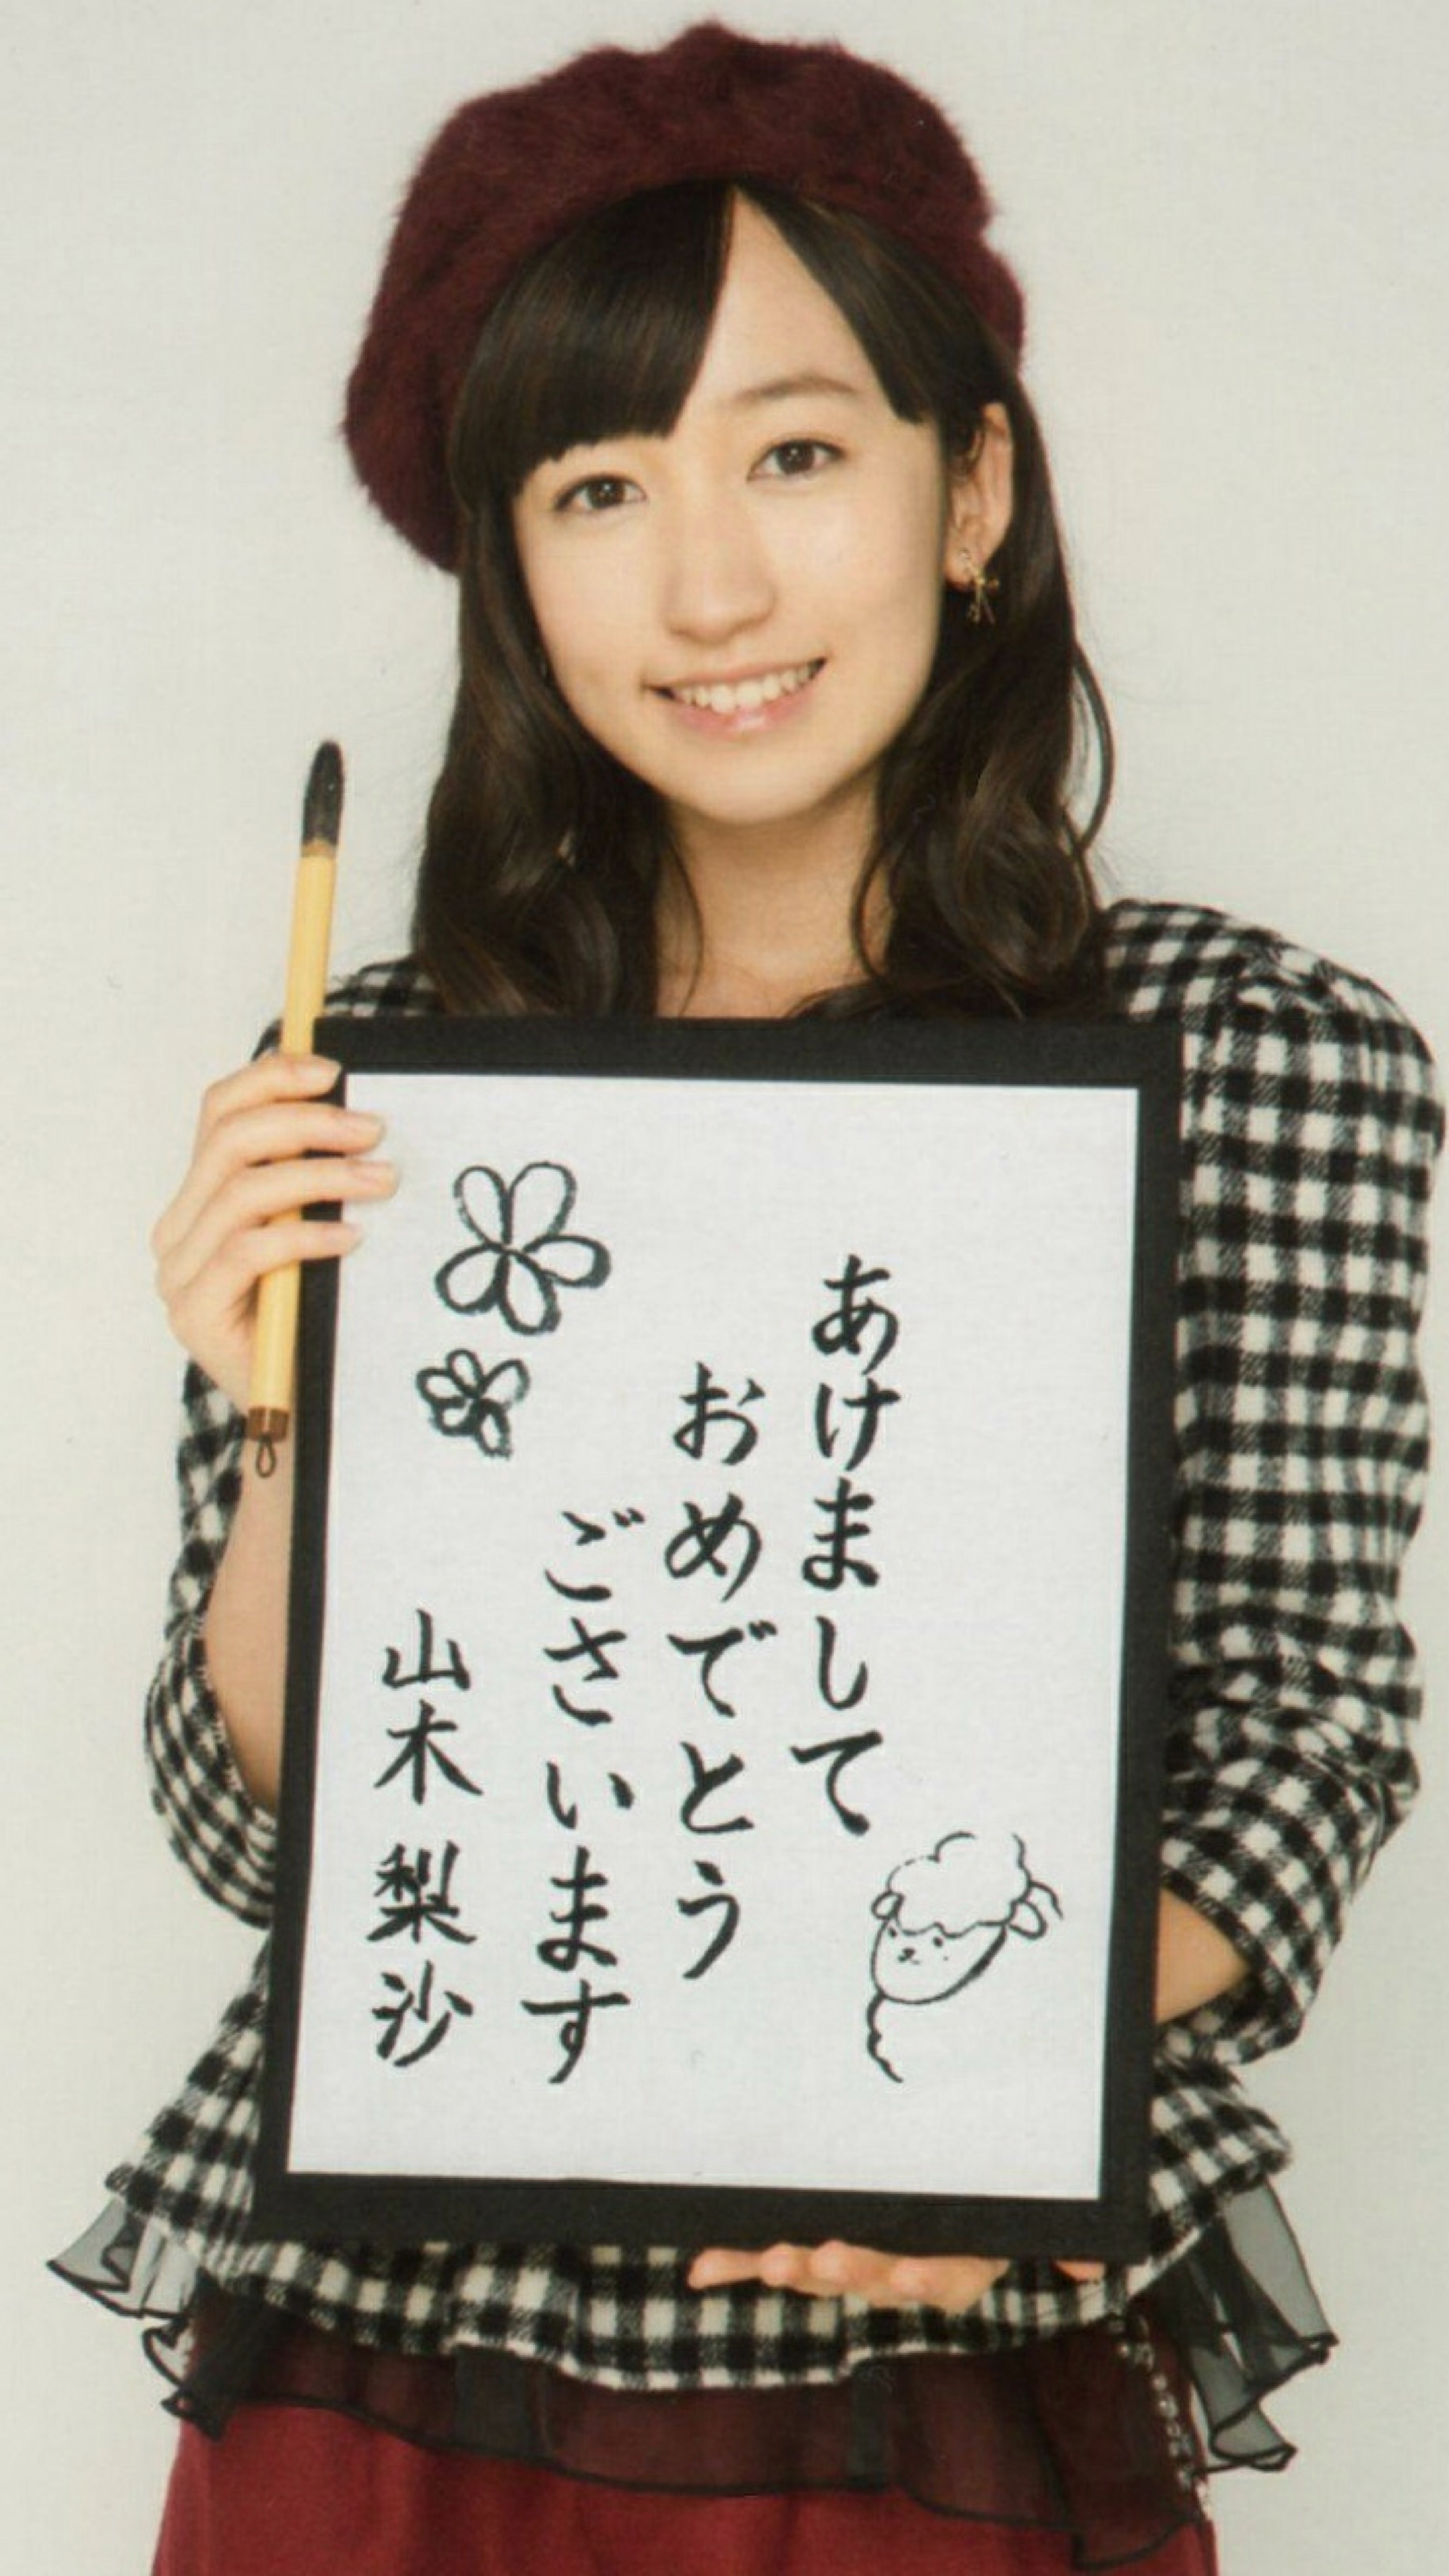 あけまして
おめでとう
ございます
山木梨沙